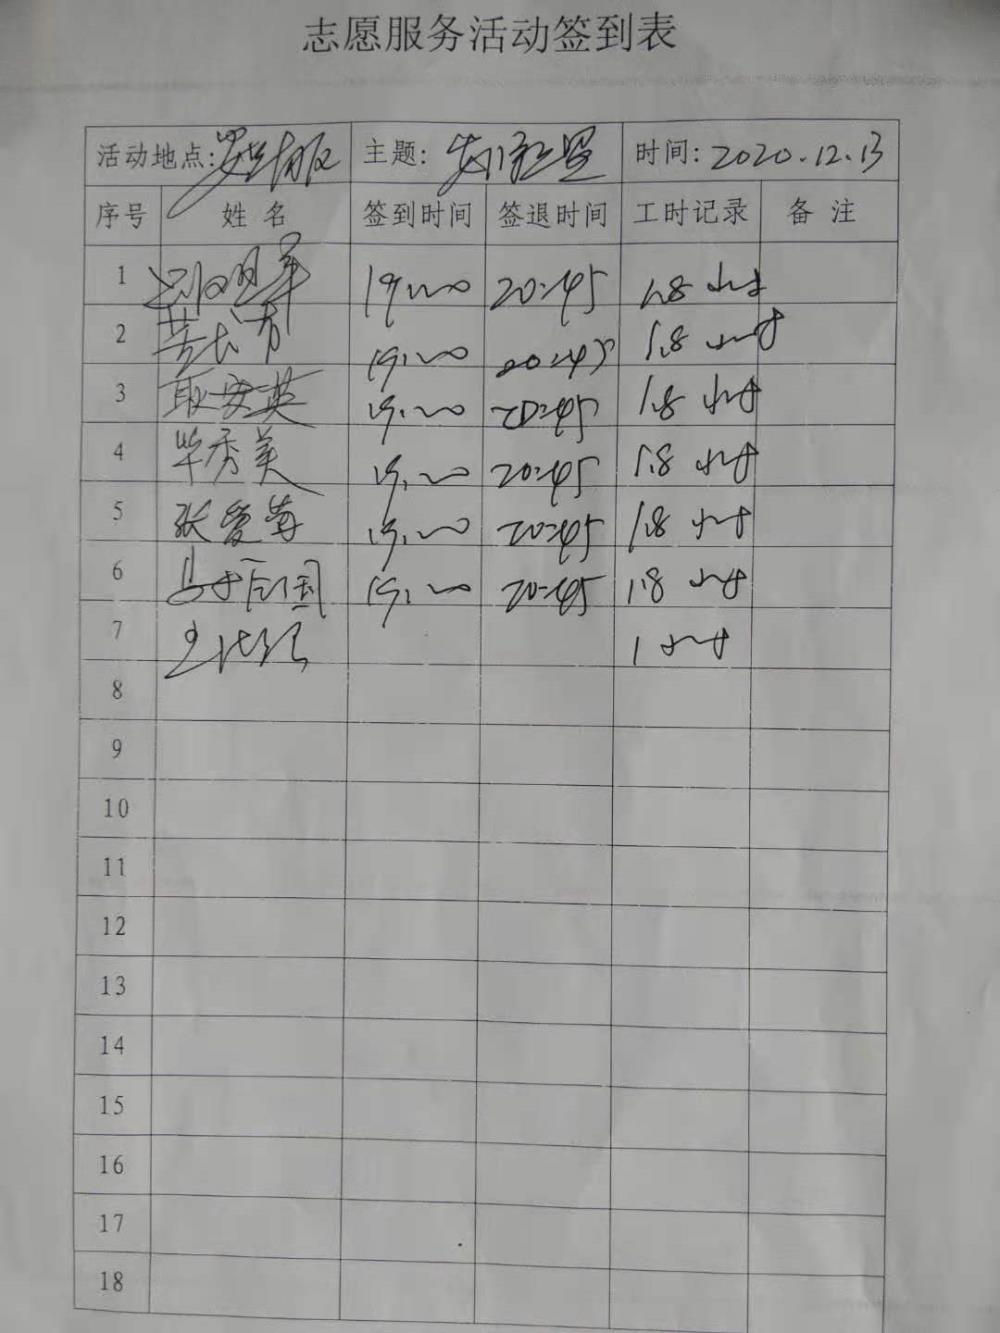 志愿服务活动签到表
活动地点: 主题: 时间: 2020.12.13
序号 姓名 签到时间 签退时间 工时记录 备注
1 19:00 20:45 1.8小时
2 19:00 20:45 1.8小时
3 耿安英 19:00 20:45 1.8小时
4 毕秀美 19:00 20:45 1.8小时
5 张爱梅 19:00 20:45 1.8小时
6 19:00 20:45 1.8小时
7 1小时
8
9
10
11
12
13
14
15
16
17
18